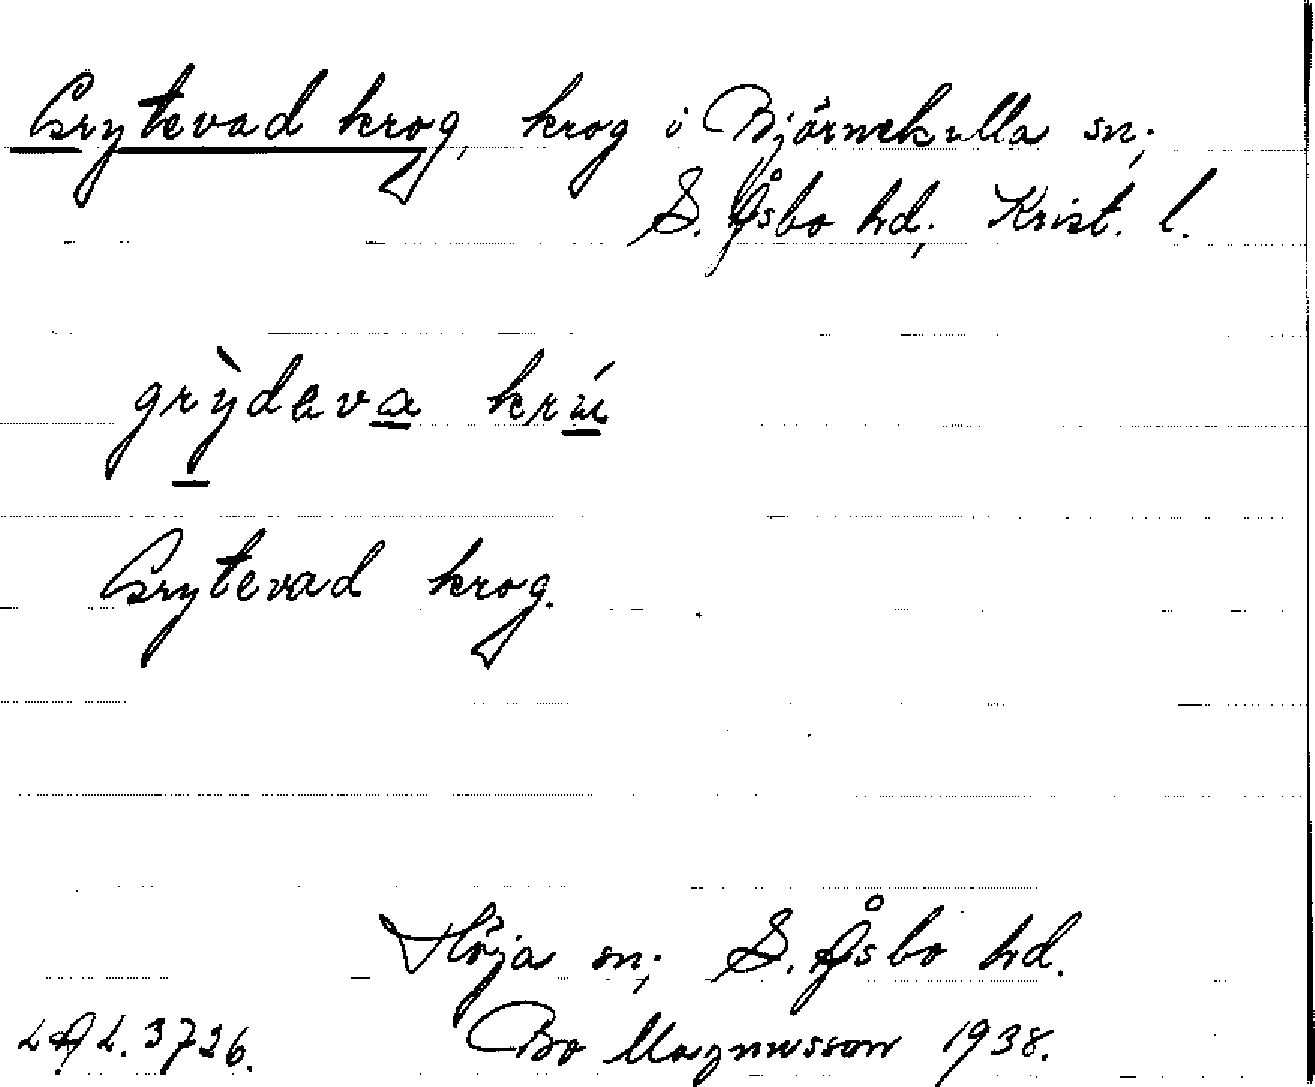 Grytevad krog, krog i Björnekulla sn;
S. Åsbo hd; Krist. l.
grỳdeva krú
Grytevad krog.
Höja sn; S. Åsbo hd.
LAL. 3726. Bo Magnusson 1938.